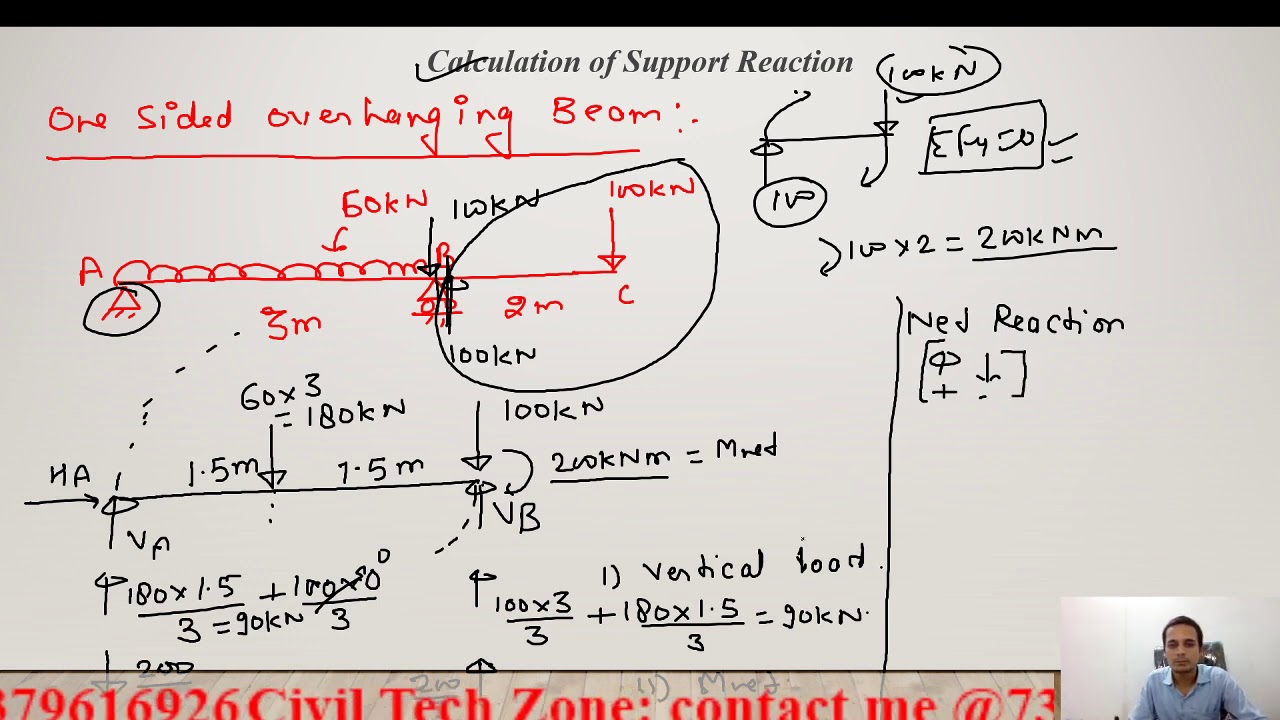 Calculation of Support Reaction
One sided overhanging Beam :-
100kN
ΣFy=0
100
100 × 2 = 200kNm
60kN
100kN
100kN
A
B
3m
2m
C
100kN
Net Reaction
+ -
60×3
= 180kN
100kN
HA
1.5m
1.5m
200kNm = Mnet
VA
VB
180×1.5/3 + 100×0/3 0
= 90kN
1) Vertical load
100×3/3 + 180×1.5/3 = 90kN
200
200
ii) Mnet
379616926 Civil Tech Zone: contact me @73